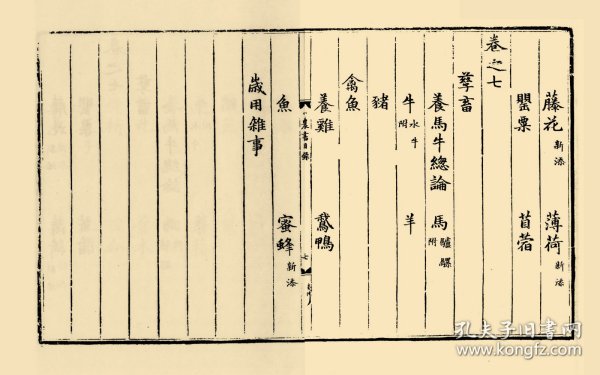 藤花 新添 薄荷 新添
罌粟 苜蓿
卷之七
孳畜
養馬牛總論 馬 驢騾附
牛 水牛附 羊
豬
禽魚
養雞 鵝鴨
農書目錄 七
魚 蜜蜂 新添
歲用雜事
孔夫子旧书网
www.kongfz.com